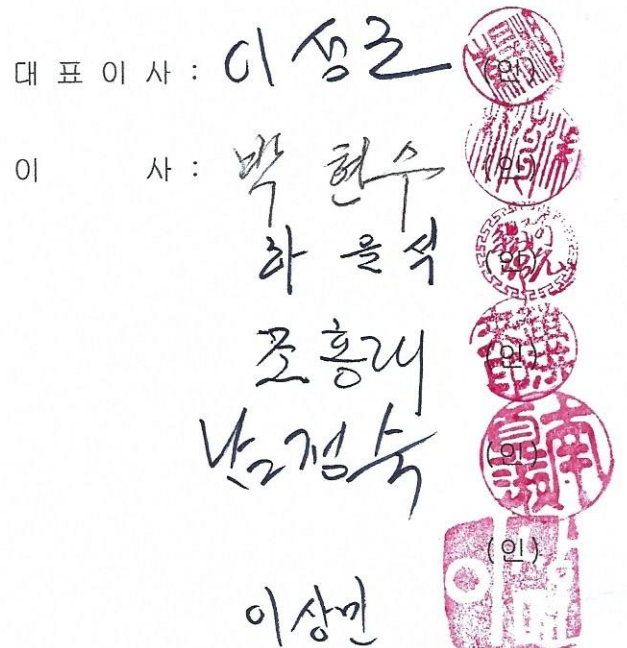 대 표 이 사 : 이성근 (인)
이 사 : 박 현수 (인)
하 윤석 (인)
조홍래 (인)
남정숙 (인)
(인)
이상민